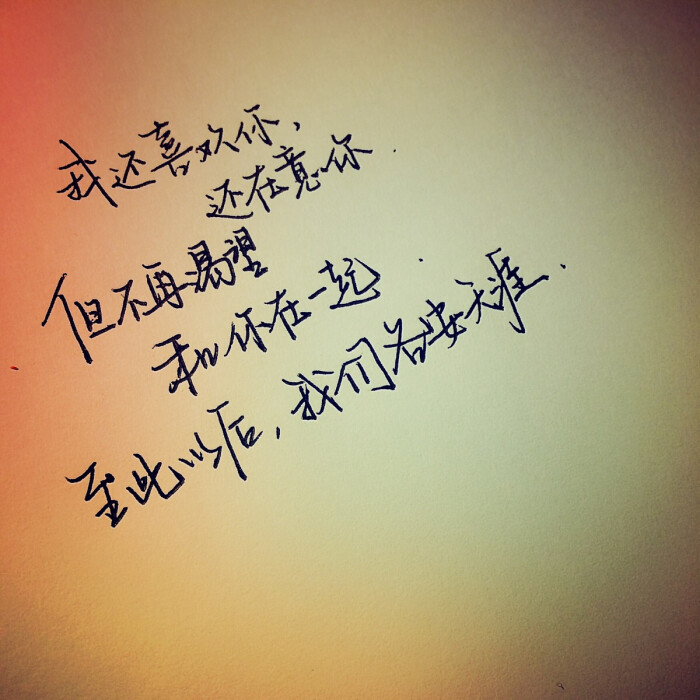 我还喜欢你，
还在意你.
但不再渴望
和你在一起.
至此以后，我们各安天涯.